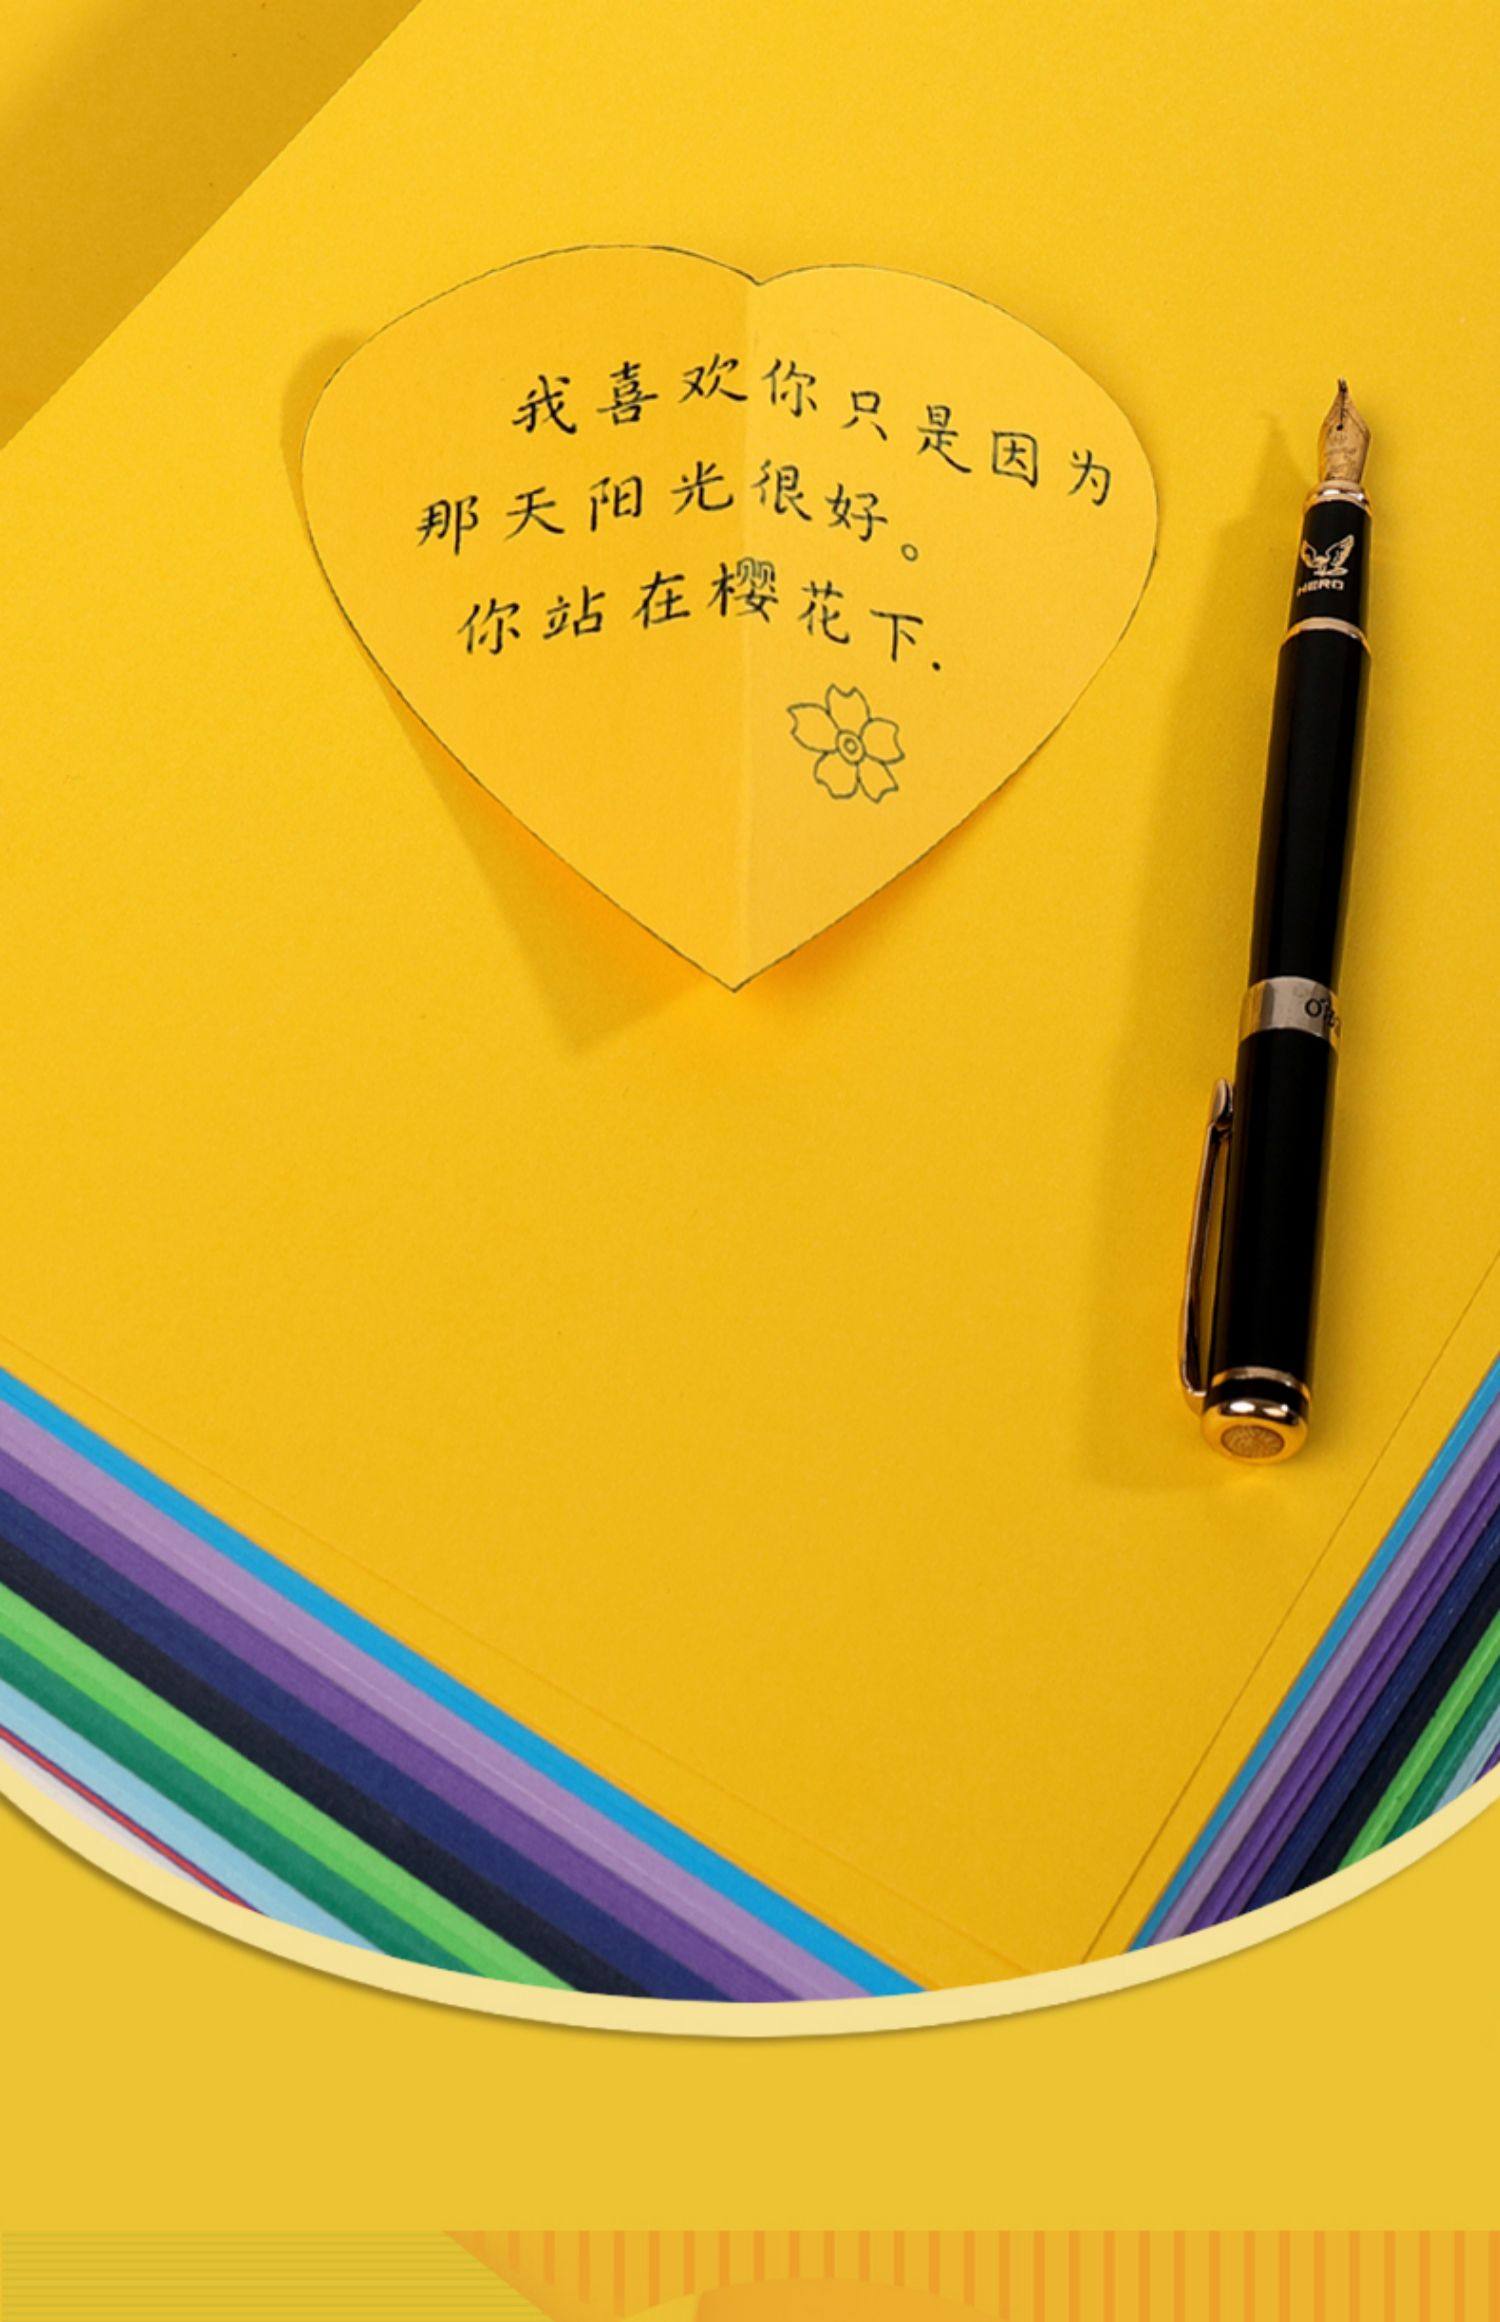 我喜欢你只是因为
那天阳光很好。
你站在樱花下.
HERO